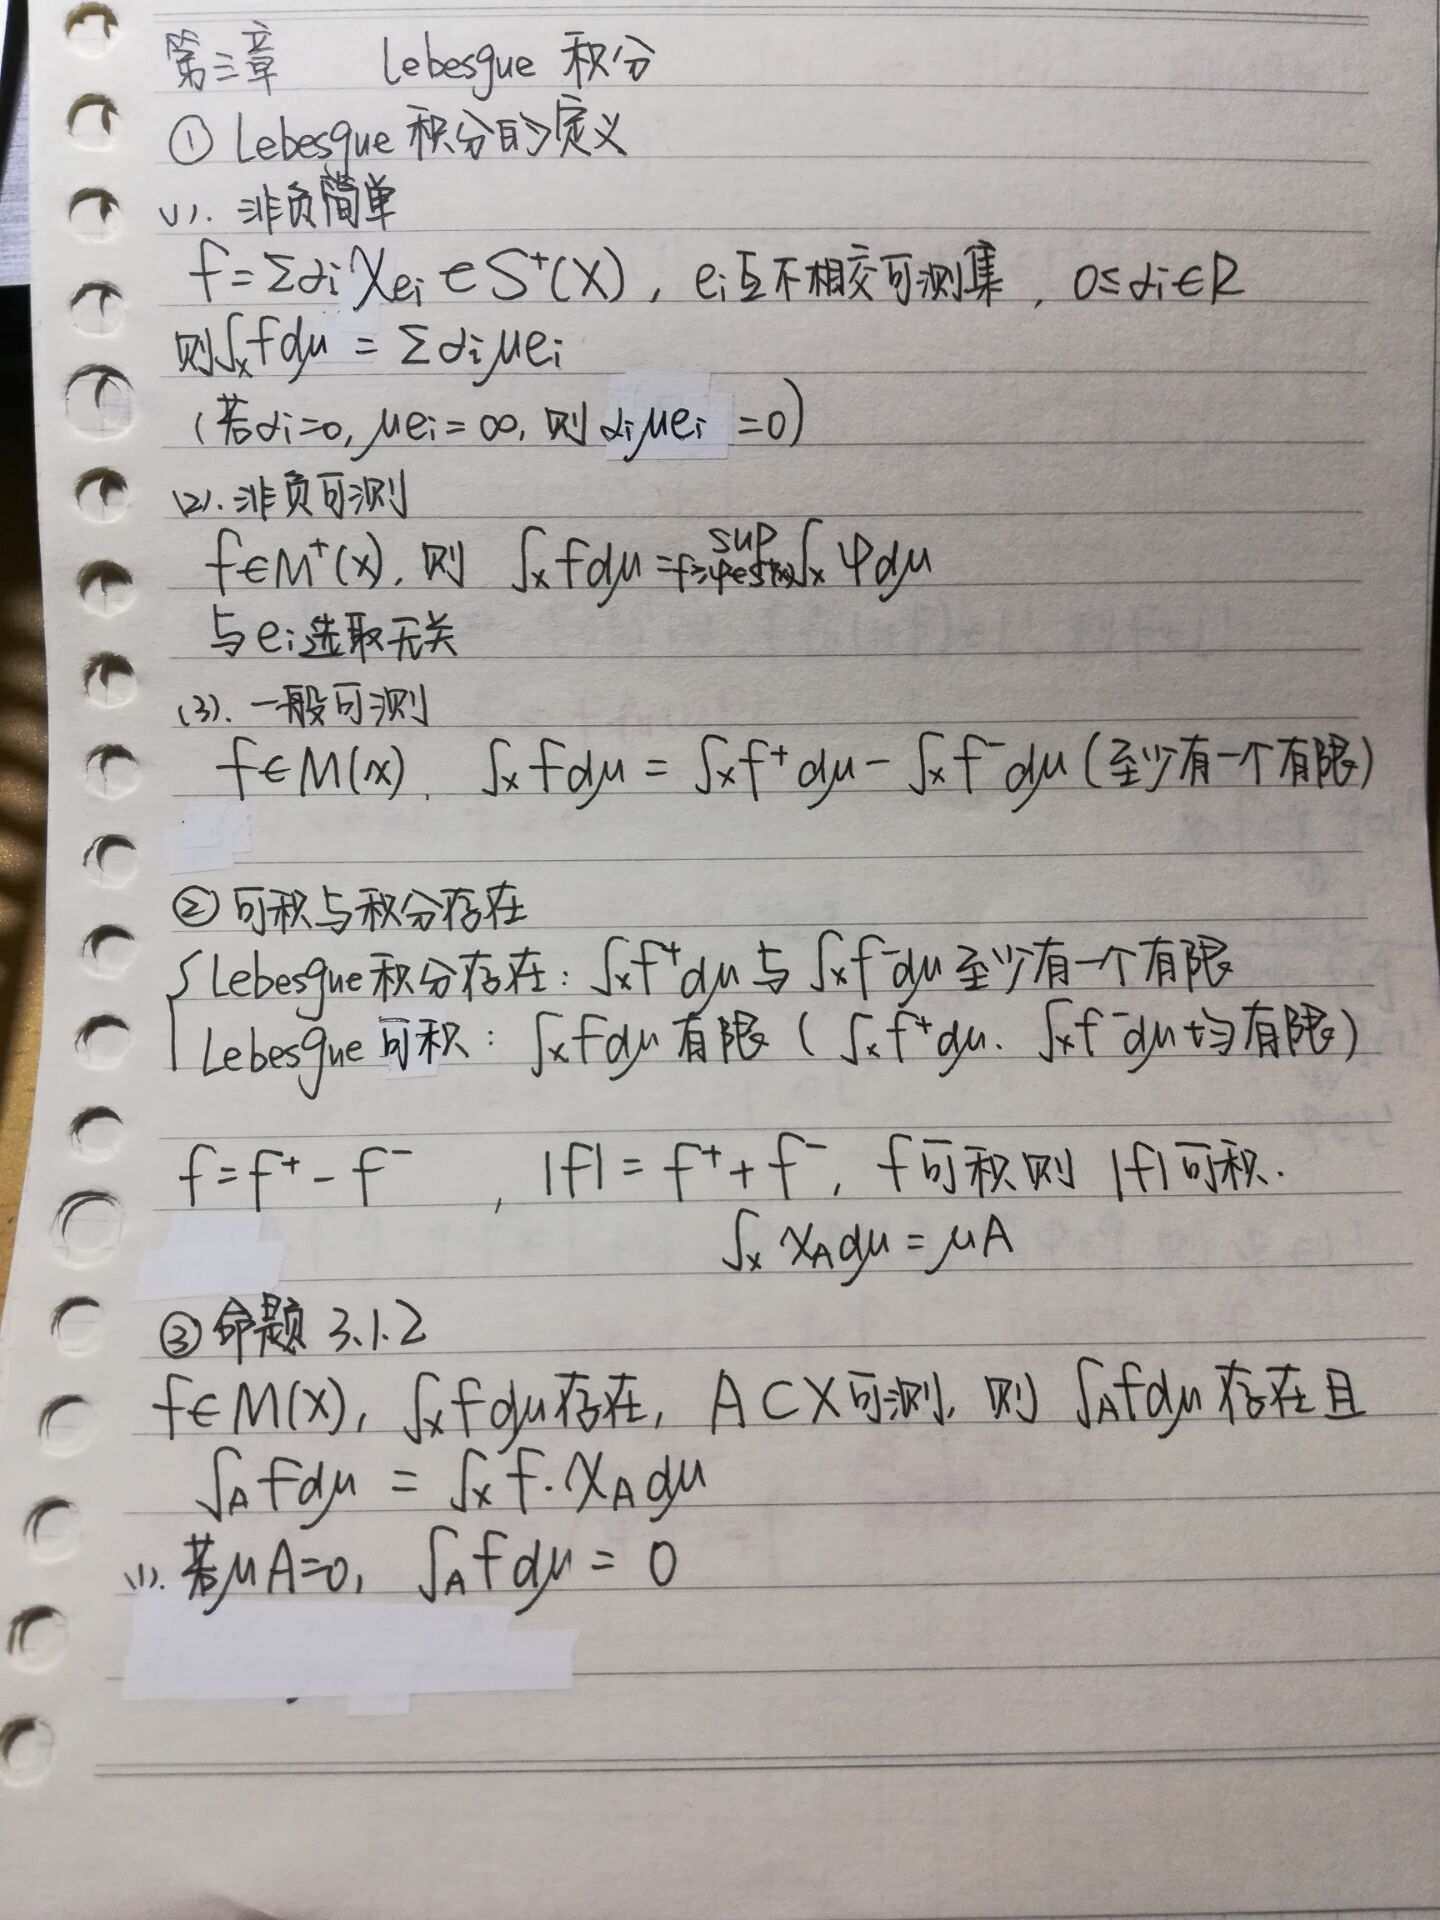 第三章 Lebesgue 积分
① Lebesgue 积分的定义
(1). 非负简单
f = Σαi χei ∈ S⁺(X), ei互不相交可测集, 0≤αi∈R
则∫x f dμ = Σαi μei
(若αi=0, μei=∞, 则 αi μei =0)
(2). 非负可测
f∈M⁺(X), 则 ∫x f dμ = sup f≥φ∈S⁺(X) ∫x φ dμ
与ei选取无关
(3). 一般可测
f∈M(X), ∫x f dμ = ∫x f⁺ dμ - ∫x f⁻ dμ (至少有一个有限)
② 可积与积分存在
{ Lebesgue积分存在: ∫x f⁺ dμ 与 ∫x f⁻ dμ 至少有一个有限
Lebesgue 可积: ∫x f dμ 有限 (∫x f⁺ dμ、∫x f⁻ dμ 均有限)
f = f⁺ - f⁻, |f| = f⁺ + f⁻, f可积则 |f|可积.
∫x χA dμ = μA
③ 命题 3.1.2
f∈M(X), ∫x f dμ存在, A⊂X可测, 则 ∫A f dμ 存在且
∫A f dμ = ∫x f·χA dμ
(1). 若μA=0, ∫A f dμ = 0